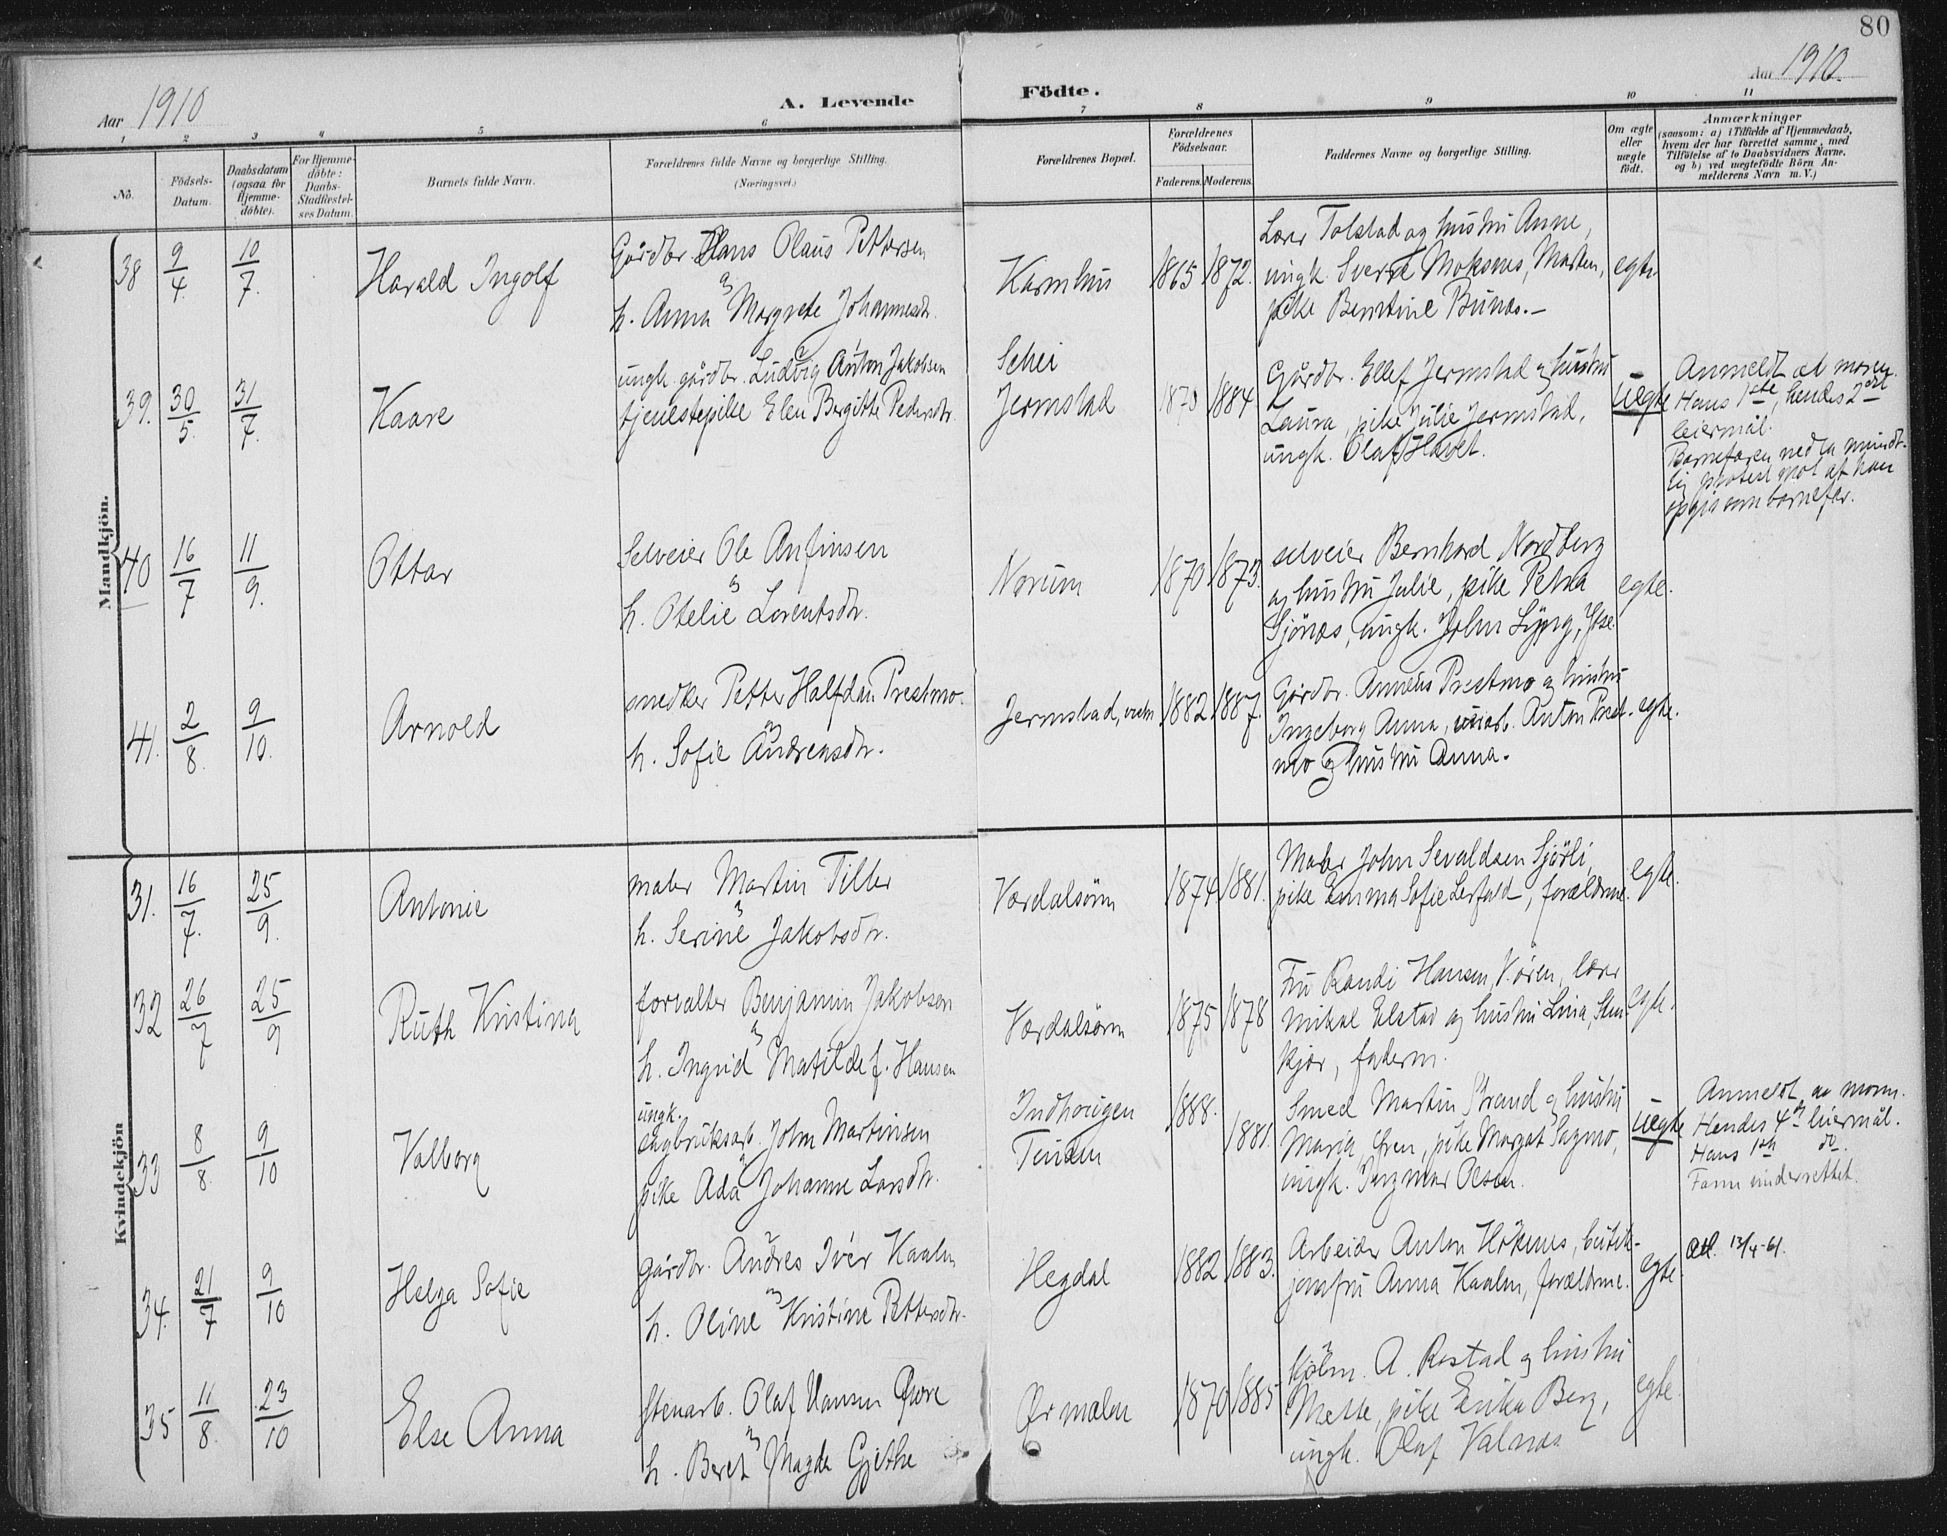 80
Aar 1910
A. Levende Födte.
Aar 1910.
1 2 3 4 5 6 7 8 9 10 11
No.
Födsels-
Datum.
Daabsdatum
(ogsaa for
Hjemme-
döbte).
For Hjemme-
döbte:
Daabs-
Stadfæstel-
ses Datum.
Barnets fulde Navn.
Forældrenes fulde Navne og borgerlige Stilling.
(Næringsvei.)
Forældrenes Bopæl.
Forældrenes
Födselsaar.
Faderens. Moderens.
Faddernes Navne og borgerlige Stilling.
Om ægte
eller
uægte
født.
Anmærkninger
(saasom: a) i Tilfælde af Hjemmedaab,
hvem der har forrettet samme, med
Tilföielse af to Daabsvidners Navne,
og b) ved uægtefödte Börn An-
melderens Navn m. V.)
Mandkjön.
38 9/4. 10/7. Harald Ingolf
Gårdbr Hans Olaus Pettersen
h. Anna Margrete Johannesdtr.
Karmhus 1865 1872.
Lærer Tolstad og hustru Anne,
ungk. Sverre Moksnes, Marten,
pike Berntine Bunæs.-
egte
39. 30/5. 31/7. Kaare
ungk. gårdbr. Ludvig Anton Jakobsen
tjenestepike Elen Bergitte Pedersdtr.
Schei
Jermstad 1870 1884
Gårdbr. Ellef Jermstad og hustru
Laura, pike Julie Jermstad,
ungk. Olaf Havet.
uegte
Anmeldt at moren.
Hans 1ste, hendes 2det
leiermål.
Barnefaren nedla mundt-
lig protest mot at han
opgis som barnefar.
40 16/7 11/9. Ottar
Selveier Ole Anfinsen
h. Otelie Lorentsdtr.
Norum 1870 1873.
selveier Bernhard Nordberg
og hustru Julie, pike Petra
Sjönæs, ungk. John Lyng,
egte.
41. 2/8. 9/10. Arnold
snedker Petter Halfdan Prestmo.
h. Sofie Andreasdtr.
Jermstad, 1882 1887.
Gårdbr. Anneus Prestmo og hustru
Ingeborg Anna, Anton Prest-
mo og hustru Anna.
egte.
Kvindekjön
31. 16/7. 25/9. Antonie
maler Martin Tiller
h. Serine Jakobsdtr.
Værdalsörn 1874 1881.
Maler John Sevaldsen Sjörli,
pike Emma Sofie Lerfald, forældrene.
egte.
32 26/7 25/9 Ruth Kristina
forvalter Benjamin Jakobsen
h. Ingrid Matilde f. Hansen
Værdalsörn 1875 1878
Fru Randi Hansen, V.ören, lærer
Mikal Elstad og hustru Lina, Sten-
kjær, faderen.
egte.
33 8/8. 9/10 Valborg
ungk.
sagbruksarb. John Martinsen
pike Ada Johanne Larsdtr.
Indhougen 1888.
Tinden 1881.
Smed Martin Strand og hustru
Maria, Ören, pike Margat Sagmo,
ungk. Ingmar Olsen.
uegte
Anmeldt av moren.
Hendes 4de leiermål.
Hans 1ste do.
Faren underrettet.
34. 21/7 9/10 Helga Sofie
gårdbr. Andres Iver Kaalen
h. Oline Kristine Pettersdtr.
Hegdal 1882 1883.
Arbeider Anton Höknes, butik-
jomfru Anna Kaalen, forældrene.
egte.
Att. 13/4-61.
35 11/8. 23/10 Else Anna
Stenarb. Olaf Hansen Övre
h. Beret Magda Gjethe
Ør melen 1870 1885
Kjøbm. A. Rostad og hustru
Mette, pike Erika Berg,
ungk. Olaf Valnæs
egte.